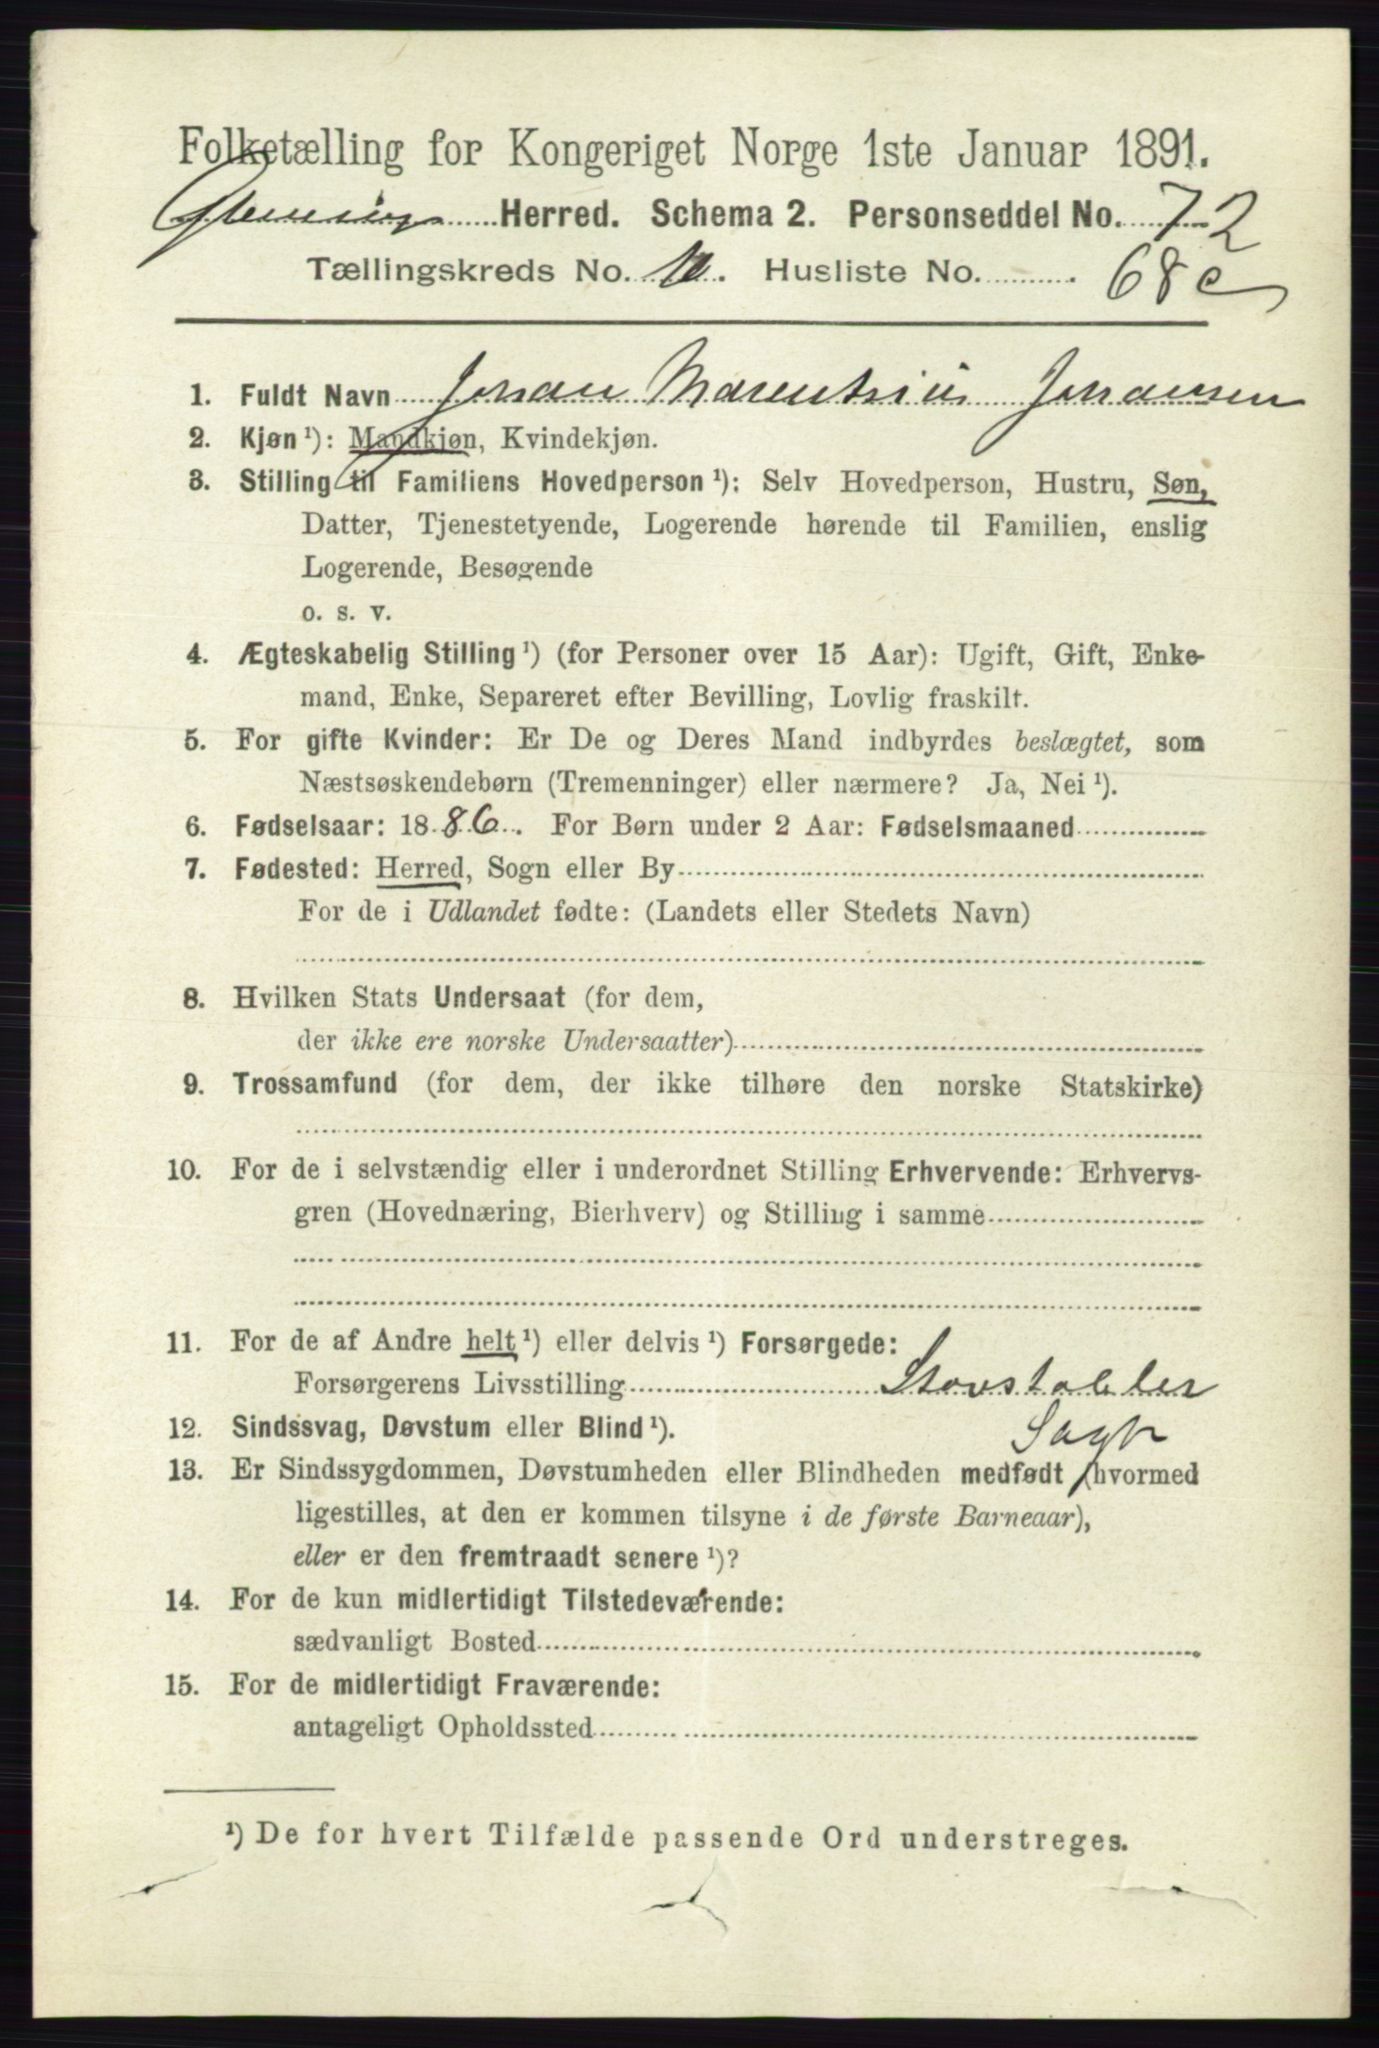 Folketælling for Kongeriget Norge 1ste Januar 1891.
Glemminge Herred. Schema 2. Personseddel No. 72
Tællingskreds No. 10. Husliste No. 68 c
1. Fuldt Navn Johan Marentsius Johansen
2. Kjøn ¹): Mandkjøn, Kvindekjøn.
3. Stilling til Familiens Hovedperson ¹): Selv Hovedperson, Hustru, Søn,
Datter, Tjenestetyende, Logerende hørende til Familien, enslig
Logerende, Besøgende
o. s. v.
4. Ægteskabelig Stilling ¹) (for Personer over 15 Aar): Ugift, Gift, Enke-
mand, Enke, Separeret efter Bevilling, Lovlig fraskilt.
5. For gifte Kvinder: Er De og Deres Mand indbyrdes beslægtet, som
Næstsøskendebørn (Tremenninger) eller nærmere? Ja, Nei ¹).
6. Fødselsaar: 1886. For Børn under 2 Aar: Fødselsmaaned
7. Fødested: Herred, Sogn eller By
For de i Udlandet fødte: (Landets eller Stedets Navn)
8. Hvilken Stats Undersaat (for dem,
der ikke ere norske Undersaatter)
9. Trossamfund (for dem, der ikke tilhøre den norske Statskirke)
10. For de i selvstændig eller i underordnet Stilling Erhvervende: Erhvervs-
gren (Hovednæring, Bierhverv) og Stilling i samme
11. For de af Andre helt ¹) eller delvis ¹) Forsørgede:
Forsørgerens Livsstilling Stavstabler
12. Sindssvag, Døvstum eller Blind ¹). Sagbr
13. Er Sindssygdommen, Døvstumheden eller Blindheden medfødt (hvormed
ligestilles, at den er kommen tilsyne i de første Barneaar),
eller er den fremtraadt senere ¹)?
14. For de kun midlertidigt Tilstedeværende:
sædvanligt Bosted
15. For de midlertidigt Fraværende:
antageligt Opholdssted
¹) De for hvert Tilfælde passende Ord understreges.